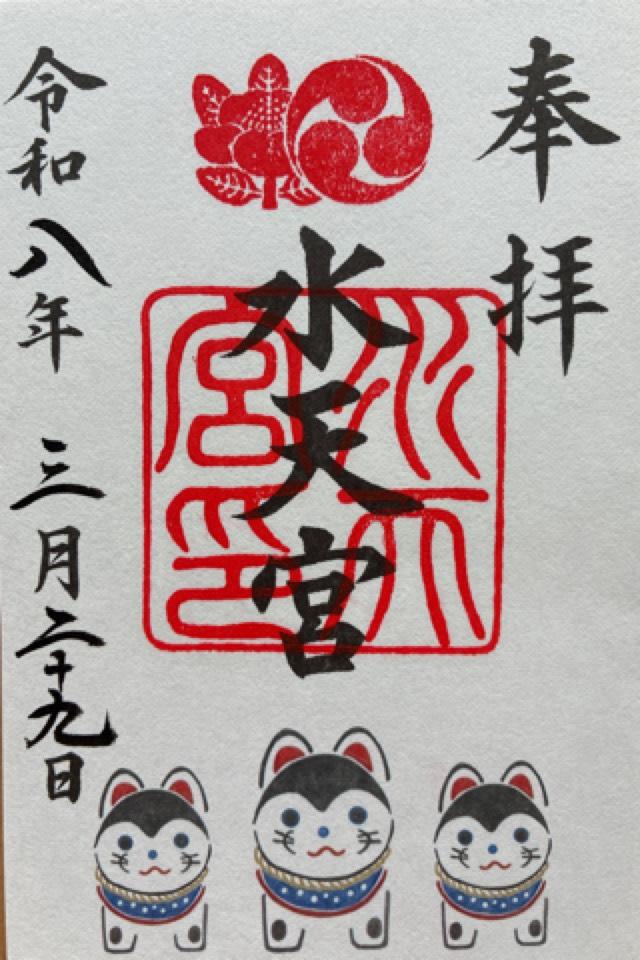 奉拝
水天宮
水天宮印
令和八年 三月二十九日